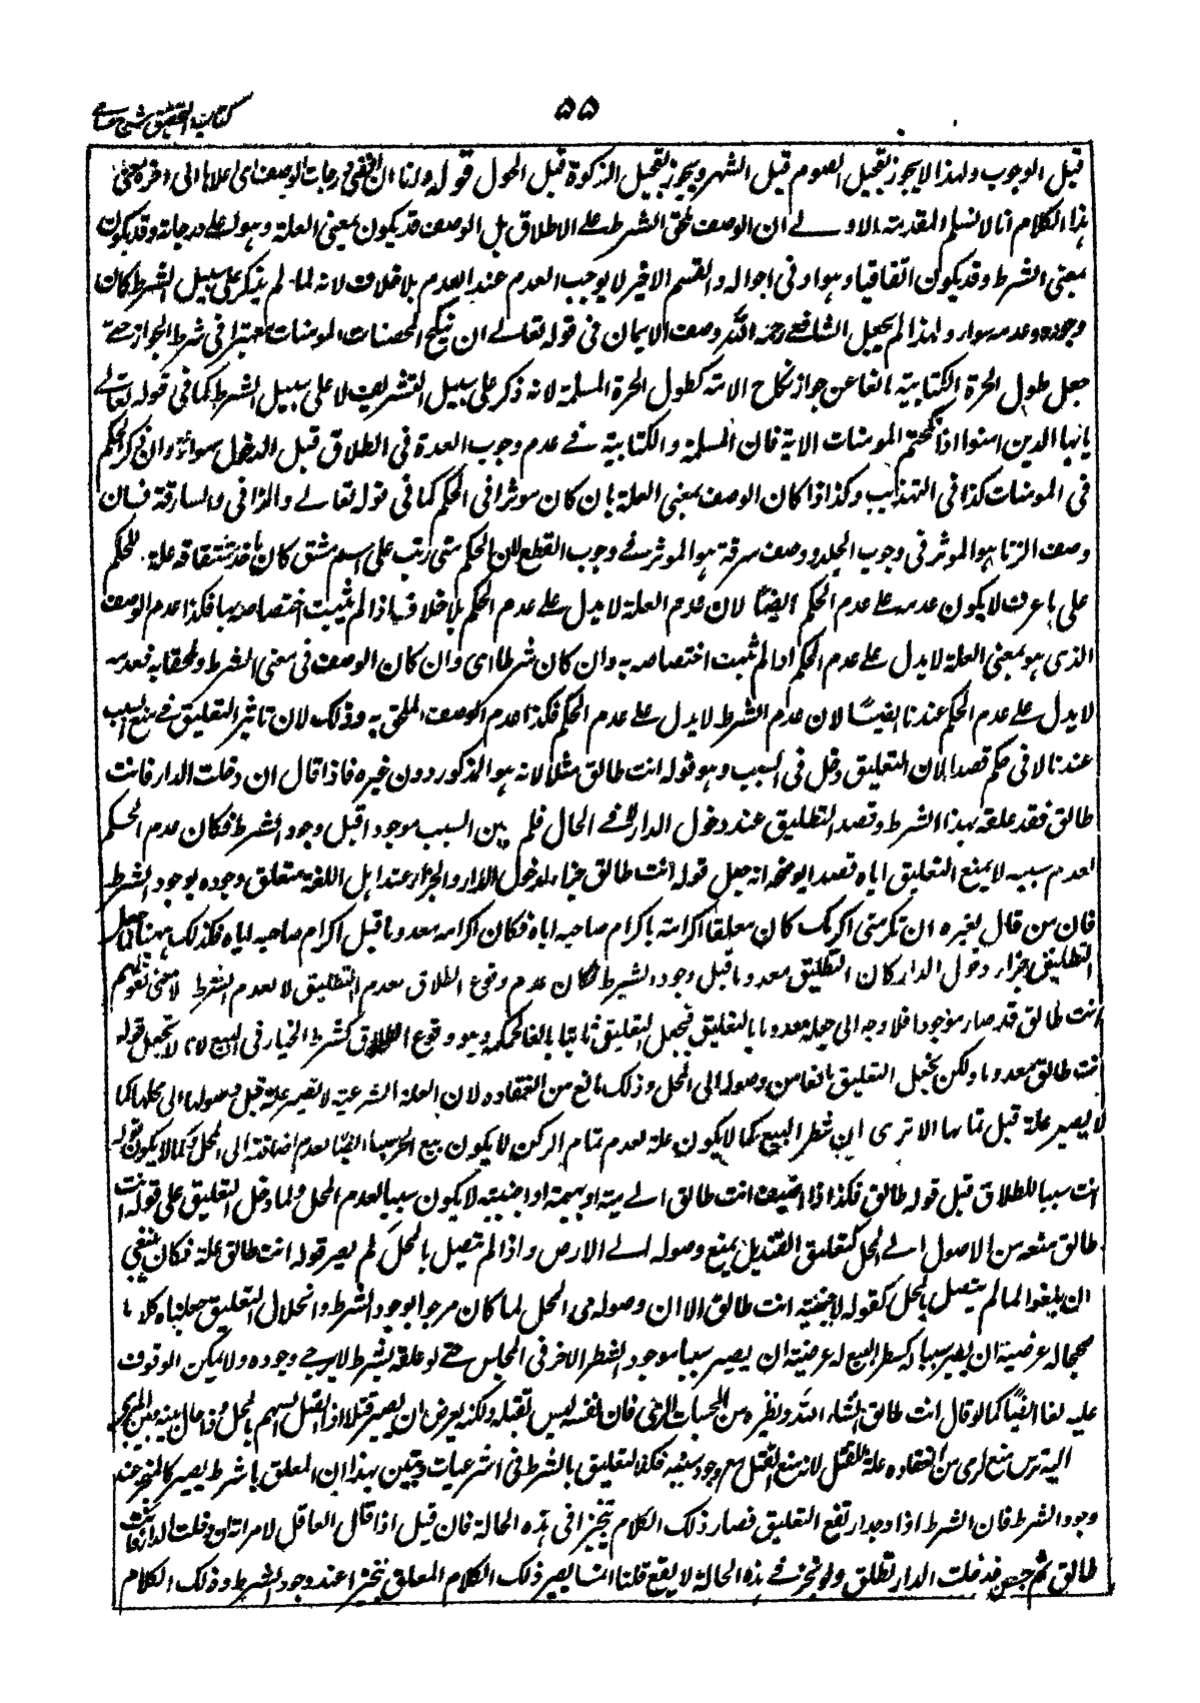 ۵۵
كتاب التحقيق شرح حسامي
قبل الوجوب ولهذا لا يجوز تعجيل الصوم قبل الشهر ويجوز تعجيل الزكوة قبل الحول قوله ولنا ان اقصى درجات الوصف اى اعلاها الى اخره يعنى
هذا الكلام انا لا نسلم المقدمة الاولے ان الوصف ملحق بالشرط على الاطلاق بل الوصف قد يكون بمعنى العلة وهو اعلى درجاته وقد يكون
بمعنى الشرط وقد يكون اتفاقيا وهو ادنى احواله والقسم الاخير لا يوجب العدم عند العدم بلا خلاف لانه لما لم يذكر على سبيل الشرط كان
وجوده وعدمه سواء ولهذا لم يجعل الشافعے رحمه الله وصف الايمان فى قوله تعالے ان ينكح المحصنات المومنات معتبرا فى شرط الجواز حتے
جعل طول الحرة الكتابية مانعا عن جواز نكاح الامة كطول الحرة المسلمة لانه ذكر على سبيل التشريف لا على سبيل الشرط كما فى قوله تعالے
يايها الذين امنوا اذا نكحتم المومنات الاية فان المسلمة والكتابية فے عدم وجوب العدة فى الطلاق قبل الدخول سواء وان ذكر الحكم
فى المومنات كذا فى التهذيب وكذا اذا كان الوصف بمعنى العلة بان كان موثرا فى الحكم كما فى قوله تعالے والزانى والسارقة فان
وصف الزنا هو الموثر فى وجوب الجلد ووصف سرقة هو الموثر فے وجوب القطع لان الحكم متى رتب على اسم مشتق كان ماخذ اشتقاقه علة للحكم
على ما عرف لا يكون عدمه على عدم الحكم ايضا لان عدم العلة لا يدل على عدم الحكم بلا خلاف اذا لم يثبت اختصاصه بها فكذا عدم الوصف
الذى هو بمعنى العلة لا يدل على عدم الحكم اذا لم يثبت اختصاصه به وان كان شرطا اى وان كان الوصف فى معنى الشرط وملحقا به فعدمه
لا يدل على عدم الحكم عندنا ايضا لان عدم الشرط لا يدل على عدم الحكم فكذا عدم الوصف الملحق به وذلك لان تاثير التعليق فے منع السبب
عندنا لا فى حكم قصدا لان التعليق دخل فى السبب وهو قوله انت طالق مثلا لانه هو المذكور دون غيره فاذا قال ان دخلت الدار فانت
طالق فقد علقه بهذا الشرط وقصد التطليق عند دخول الدار لا فے الحال فلم يبن السبب موجودا قبل وجود الشرط فكان عدم الحكم
لعدم سببه لا بمنع التعليق اياه قصدا يوضحه انه جعل قوله انت طالق جزاء لدخول الدار والجزاء عند اهل اللغة متعلق وجوده بوجود الشرط
فان من قال لغيره ان تكرمنى اكرمك كان معلقا اكرامه باكرام صاحبه اياه فكان اكرامه معدوما قبل اكرام صاحبه اياه فكذلك ههنا لما جعل
التطليق جزاء دخول الدار كان التطليق معدوما قبل وجود الشرط فكان عدم وقوع الطلاق لعدم التطليق لا لعدم الشرط لا معنى لقولهم
انت طالق قد صار موجودا فلا وجه الى جعله معدوما بالتعليق فيجعل التعليق ثابتا بالغا حكمه وهو وقوع الطلاق كشرط الخيار فى البيع لانا لا نجعل قوله
انت طالق معدوما ولكن نجعل التعليق مانعا من وصوله الى المحل وذلك مانع من انعقاده لان العلة الشرعية لا تصير علة قبل وصولها الى محلها كما
لا يصير علة قبل تمامها الا ترى ان شطر البيع كما لا يكون علة لعدم تمام الركن لا يكون بيع الحر سببا ايضا لعدم اضافته الى المحل وكما لا يكون قوله
انت سببا للطلاق قبل قوله طالق فكذا اذا اضيف انت طالق الے ميتة او بهيمة او اجنبية لا يكون سببا لعدم المحل ولما دخل التعليق على قوله انت
طالق منعه من الاصول الے المحل كتعليق القنديل يمنع وصوله الے الارض واذا لم يتصل بالمحل لم يصر قوله انت طالق علة فكان ينبغى
ان يلغوا لما لم يتصل بالمحل كقوله لاجنبية انت طالق الا ان وصوله الى المحل لما كان مرجوا بوجود الشرط وانحلال التعليق جعلناه كلاما
صحيحا له عرضية ان يصير سببا كشطر البيع له عرضية ان يصير سببا بوجود الشطر الاخر فى المجلس حتے لو علقه بشرط لا يرجے وجوده ولا يمكن الوقوف
عليه لغا ايضا كما لو قال انت طالق انشاء الله ونظيره من الحسيات الرمى فان نفسه ليس بقتل ولكنه يعرض ان يصير قتلا اذا اتصل السهم بالمحل واذا حال بينه وبين المرمى
اليه ترس منع الرمى من انعقاده علة للقتل لانه منع القتل مع وجود سببه فكذا التعليق بالشرط فى الشرعيات وتبين بهذا ان المعلق بالشرط يصير كالمنجز عند
وجود الشرط فان الشرط اذا وجد ارتفع التعليق فصار ذلك الكلام تنجيزا فى هذه الحالة فان قيل اذا قال العاقل لامراته ان دخلت الدار فانت
طالق ثم جن فدخلت الدار تطلق ولو نجز فے هذه الحالة لا يقع قلنا انما يصير ذلك الكلام المعلق تنجيزا عند وجود الشرط وذلك الكلام